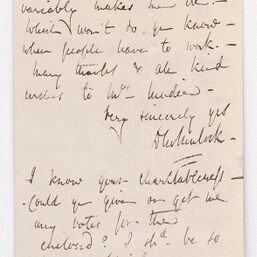 variably makes me ill. –
Which won't do, yr know –
when people have to work. –
Many thanks & all kind
wishes to Mrs
Very sincerely yrs

I know your charitableness –
– Could yr give or get me
any votes for these
children? I shd. be so